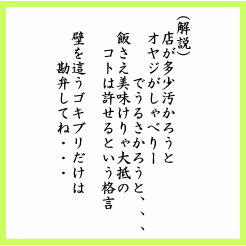 (解説)
店が多少汚かろうと
オヤジがしゃべりー
でうるさかろうと、、、
飯さえ美味けりゃ大抵の
コトは許せるという格言
壁を這うゴキブリだけは
勘弁してね・・・